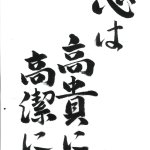 心は
高貴に
高潔に